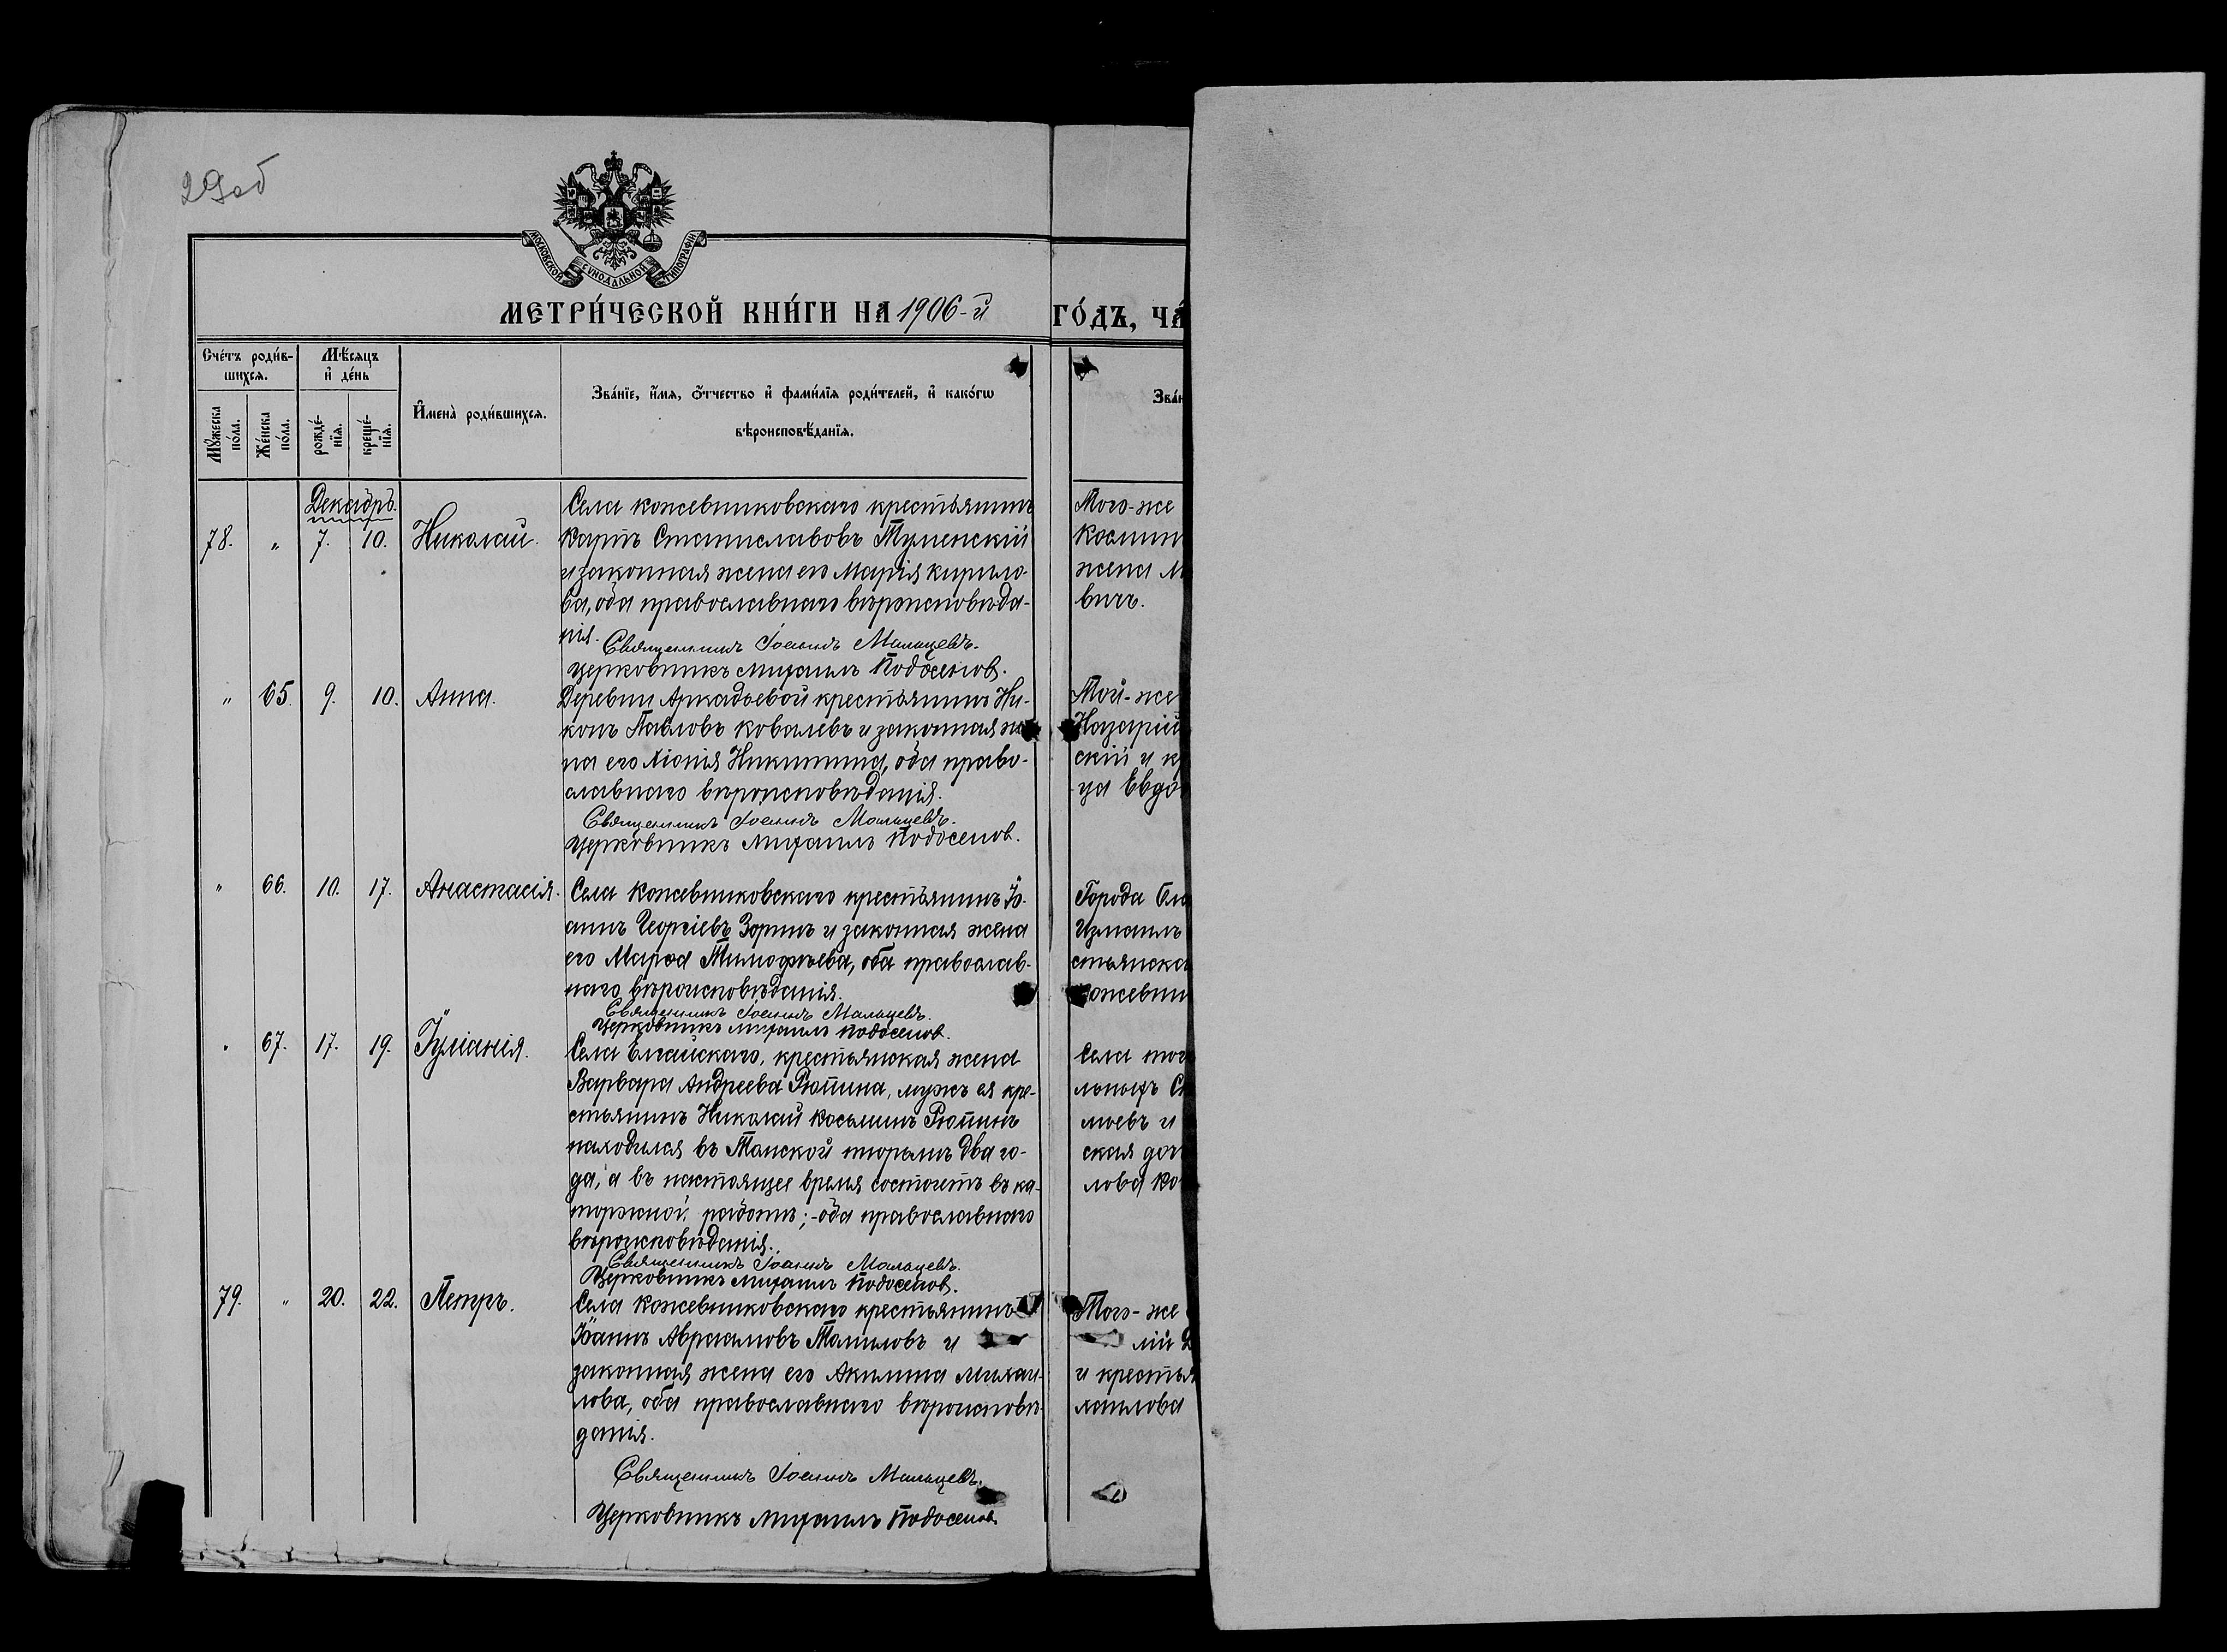 29об
МОСКОВСКОЙ СѴНОДАЛЬНОЙ ТИПОГРАФІИ
МЕТРИ́ЧЕСКОЙ КНИ́ГИ НА 1906-й ГО́ДЪ, ЧА
Сче́тъ роди́в-
шихсѧ.
Мѣ́сѧцъ
и҆ де́нь
Мꙋ́жеска
по́ла.
Же́нска
по́ла.
рожде́-
нїѧ.
креще́-
нїѧ.
И҆мена̀ роди́вшихсѧ.
Зва́нїе, и҆́мѧ, ѻ҆́тчество и҆ фами́лїѧ роди́телей, и҆ како́гѡ
вѣроисповѣ́данїѧ.
Зва́н
Декабрь.
78. " 7. 10. Николай.
Села Кожевниковскаго крестьянинъ
Карпъ Станиславовъ Туменскій
и законная жена его Марія Кирило-
ва, оба православнаго вѣроисповѣда-
нія. Священникъ Іоаннъ Мальцевъ.
Церковникъ Михаилъ Подосенов.
Того-же
жена М
вичъ.
" 65. 9. 10. Анна.
Деревни Аркадьевой крестьянинъ Ни-
конъ Павловъ Ковалевъ и законная же
на его Хіонія Никитина, оба право-
славнаго вѣроисповѣданія.
Священникъ Іоаннъ Мальцевъ.
Церковникъ Михаилъ Подосенов.
Той-же
Назарій
скій и кр
ца Евдо
" 66. 10. 17. Анастасія.
Села Кожевниковскаго крестьянинъ Іо-
аннъ Георгіевъ Зоринъ и законная жена
его Марѳа Тимофѣева, оба православ-
наго вѣроисповѣданія.
Священникъ Іоаннъ Мальцевъ.
Церковникъ Михаилъ Подосенов.
Города
Измаилъ
стьянска
Кожевни
" 67. 17. 19. Іуліанія.
Села Елгайскаго, крестьянская жена
Варвара Андреева Рюпина, мужъ ея кре-
стьянинъ Николай Косьминъ Рюпинъ
находился въ Томской тюрьмѣ два го-
да, а въ настоящее время состоитъ въ ка-
торжной работѣ; - оба православнаго
вѣроисповѣданія.
Священникъ Іоаннъ Мальцевъ.
Церковникъ Михаилъ Подосенов.
Села того
льныхъ
моевъ и
ская доч
лова Ко
79. " 20. 22. Петръ.
Села Кожевниковскаго крестьянинъ
Іоаннъ Авраамовъ Томиловъ и
законная жена его Акилина Михаи-
лова, оба православнаго вѣроисповѣ-
данія.
Священникъ Іоаннъ Мальцевъ.
Церковникъ Михаилъ Подосенов
Того-же
лій
и крестья
хаилова